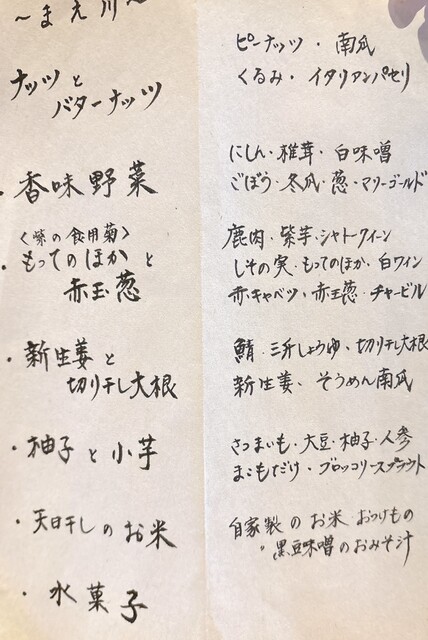 〜まえ川〜
ナッツと
バターナッツ
ピーナッツ・南瓜
くるみ・イタリアンパセリ
・香味野菜
にしん・椎茸・白味噌
ごぼう・冬瓜・葱・マリーゴールド
〈紫の食用菊〉
・もってのほかと
赤玉葱
鹿肉・紫芋・シャトークイーン
しその実・もってのほか・白ワイン
赤キャベツ・赤玉葱・チャービル
・新生姜と
切り干し大根
鯖・三升しょうゆ・切り干し大根
新生姜・そうめん南瓜
・柚子と小芋
さつまいも・大豆・柚子・人参
まこもだけ・ブロッコリースプラウト
・天日干しのお米
自家製のお米 おつけもの
黒豆味噌のおみそ汁
・水菓子